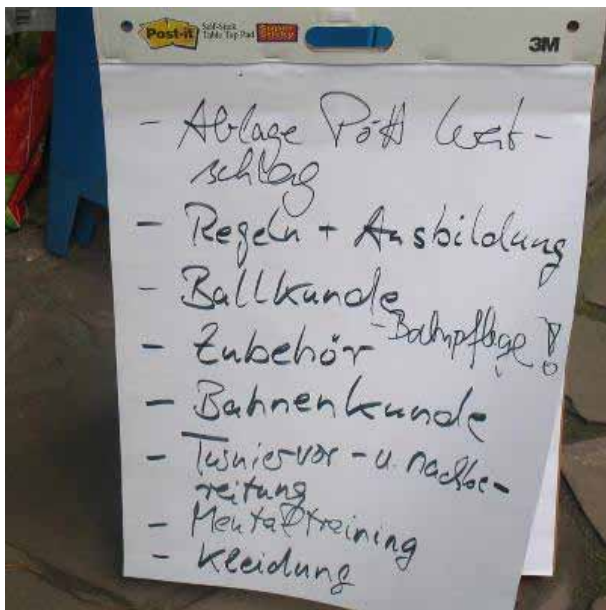 Post-it Self-Stick Table Top Pad Super Sticky 3M
- Ablage Pött Weit-
schlag
- Regeln + Ausbildung
- Ballkunde
- Zubehör
- Bahnpflege!
- Bahnenkunde
- Turniervor- u. Nachbe-
reitung
- Mentaltraining
- Kleidung